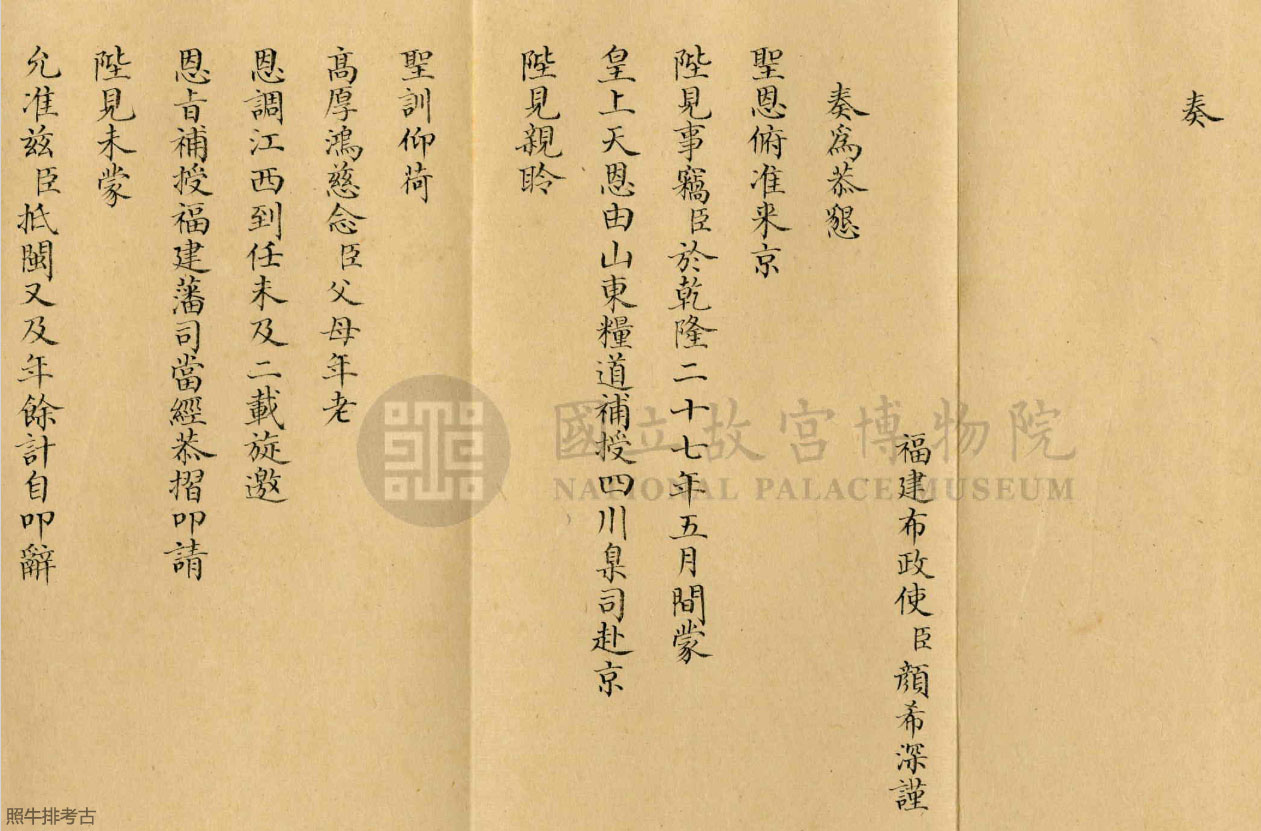 奏
福建布政使臣顏希深謹
奏爲恭懇
聖恩俯准来京
陛見事竊臣於乾隆二十七年五月間蒙
皇上天恩由山東糧道補授四川臬司赴京
陛見親聆
聖訓仰荷
高厚鴻慈念臣父母年老
恩調江西到任未及二載旋邀
恩旨補授福建藩司當經恭摺叩請
陛見未蒙
允准兹臣抵閩又及年餘計自叩辭
國立故宮博物院
NATIONAL PALACE MUSEUM
照牛排考古